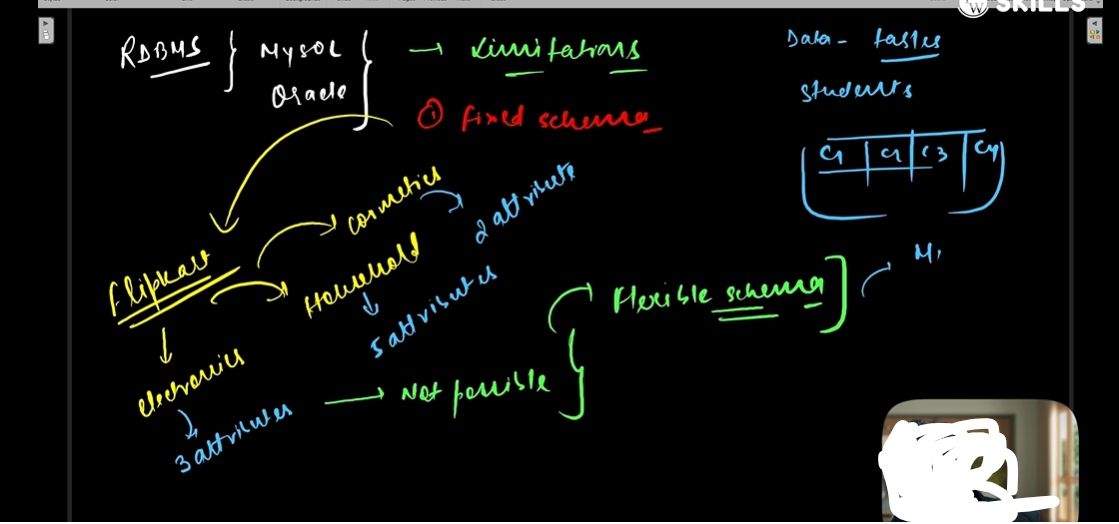 SKILLS
RDBMS } MySQL } → Limitations
Oracle
① fixed schema
Data - tables
students
C3 | C4
Flipkart
cosmetics
2 attribute
Household
5 attributes
electronics
3 attributes
→ Not possible
Flexible schema
M